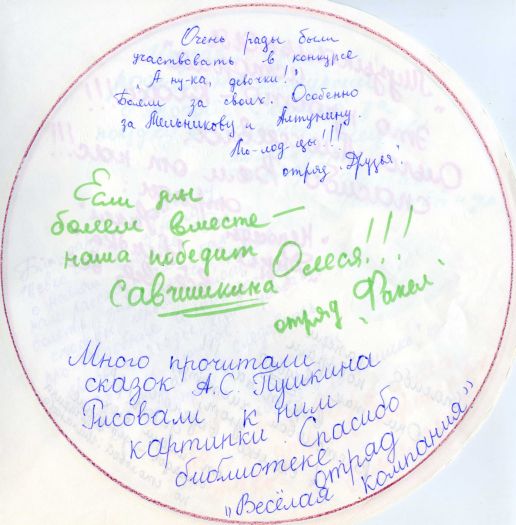 Очень рады были
участвовать в конкурсе
"А ну-ка, девочки!"
Болели за своих. Особенно
за Мельникову и Алтунину.
Мо-лод-цы!!!
отряд "Друзья".
Если мы
болеем вместе —
наша победит
Савчишкина Олеся!!!
отряд "Факел"
Много прочитали
сказок А.С. Пушкина
Рисовали к ним
картинки. Спасибо
библиотеке отряд
"Весёлая компания".